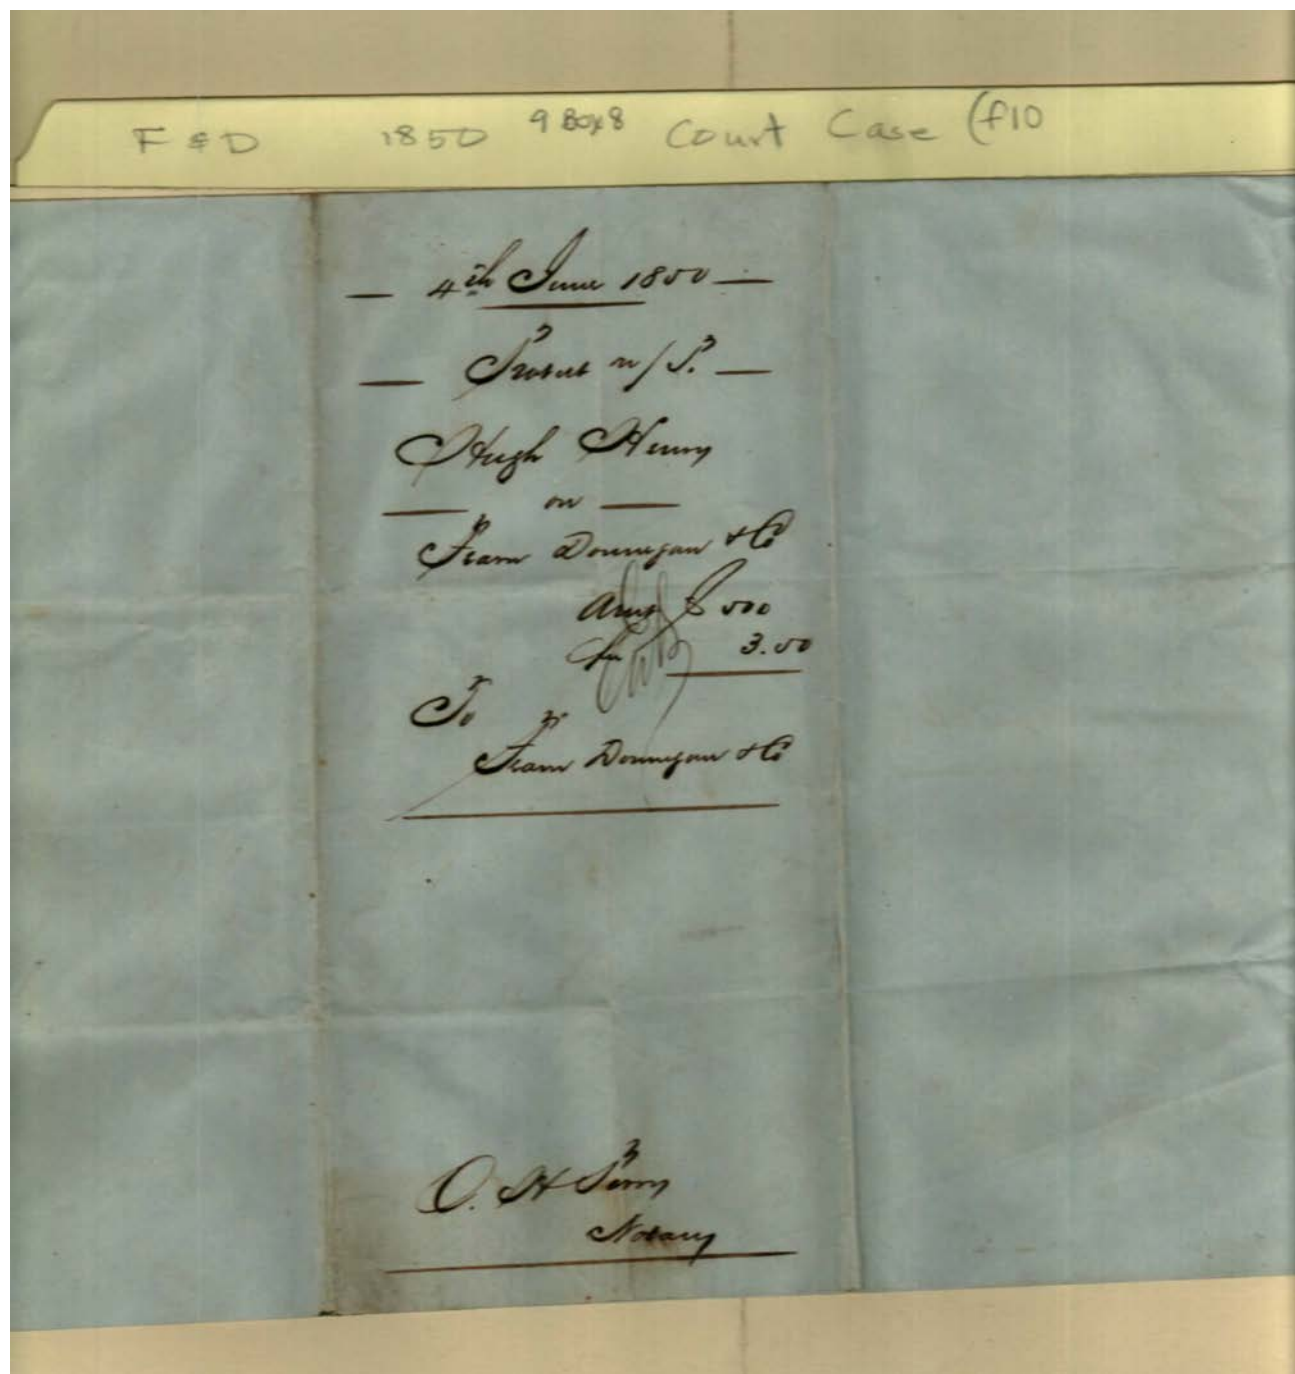 F & D 1850 9 Box 8 Court Case (f10
— 4th June 1850 —
— Protest n/P. —
Hugh Henry
— on —
Fearn Donnegan & Co
Amt $ 500
3.50
To
Fearn Donnegan & Co
O. H Perry
Notary